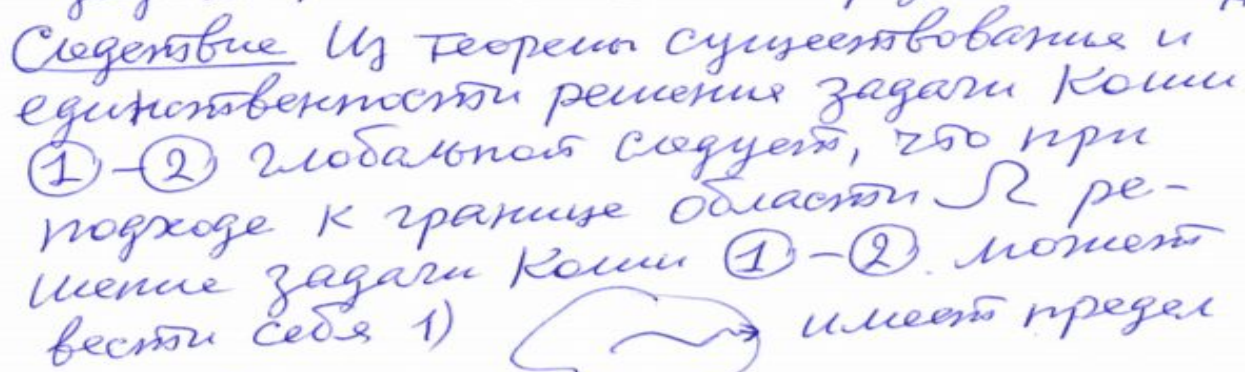 Следствие Из теоремы существования и
единственности решения задачи Коши
①-② глобальной следует, что при
подходе к границе области Ω ре-
шение задачи Коши ①-② может
вести себя 1) имеет предел